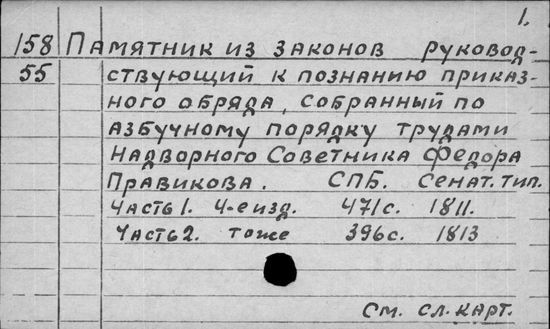 1.
158 Памятник из законов руковод-
55 ствующий к познанию приказ-
ного обряда, собранный по
азбучному порядку трудами
Надворного Советника Федора
Правикова. СПБ. Сенат. тип.
Часть 1. 4-е изд. 471 с. 1811.
Часть 2. тоже 396 с. 1813
См. сл. карт.